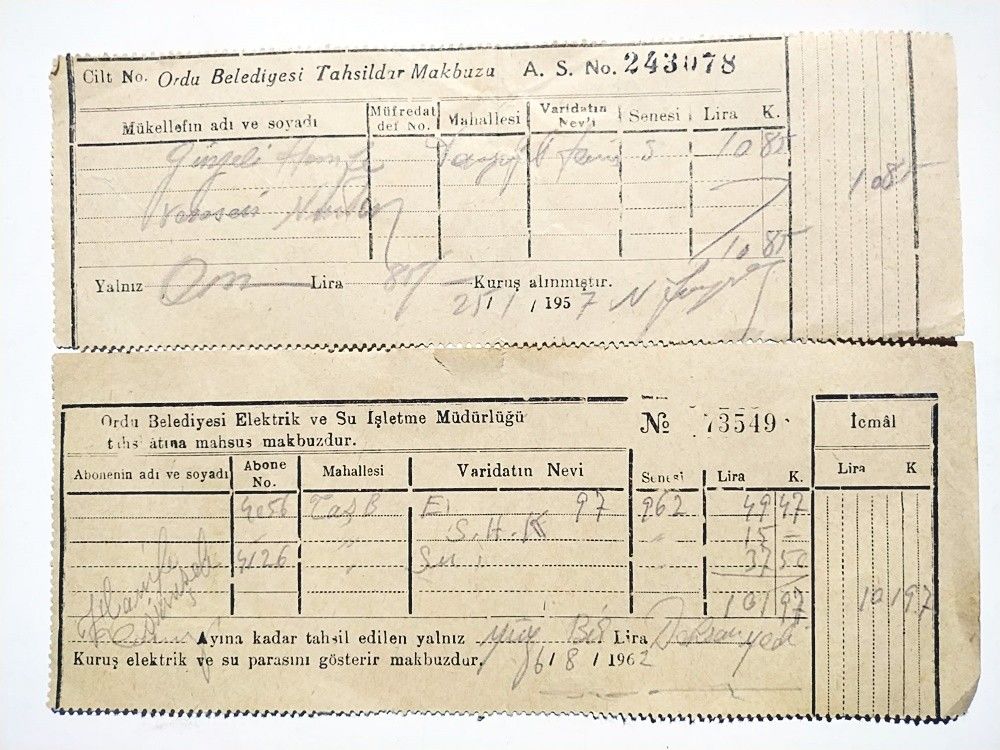 Cilt No. Ordu Belediyesi Tahsildar Makbuzu A. S. No. 243078
Mükellefin adı ve soyadı Müfredat def No. Mahallesi Varidatın Nev'i Senesi Lira K.
10 85
10 85
10 85
Yalnız On Lira 85 Kuruş alınmıştır.
25/ 1 / 1957
Ordu Belediyesi Elektrik ve Su İşletme Müdürlüğü
tahsilâtına mahsus makbuzdur.
№ 73549
İcmâl
Abonenin adı ve soyadı Abone No. Mahallesi Varidatın Nevi Senesi Lira K. Lira K
4056 Taş B El 97 962 49 47
S.H.K 15 –
4126 " Su " 37 50
101 97 101 97
Hanife
Ayına kadar tahsil edilen yalnız yüz Bir Lira Doksan yedi
Kuruş elektrik ve su parasını gösterir makbuzdur. 6/ 8 / 1962